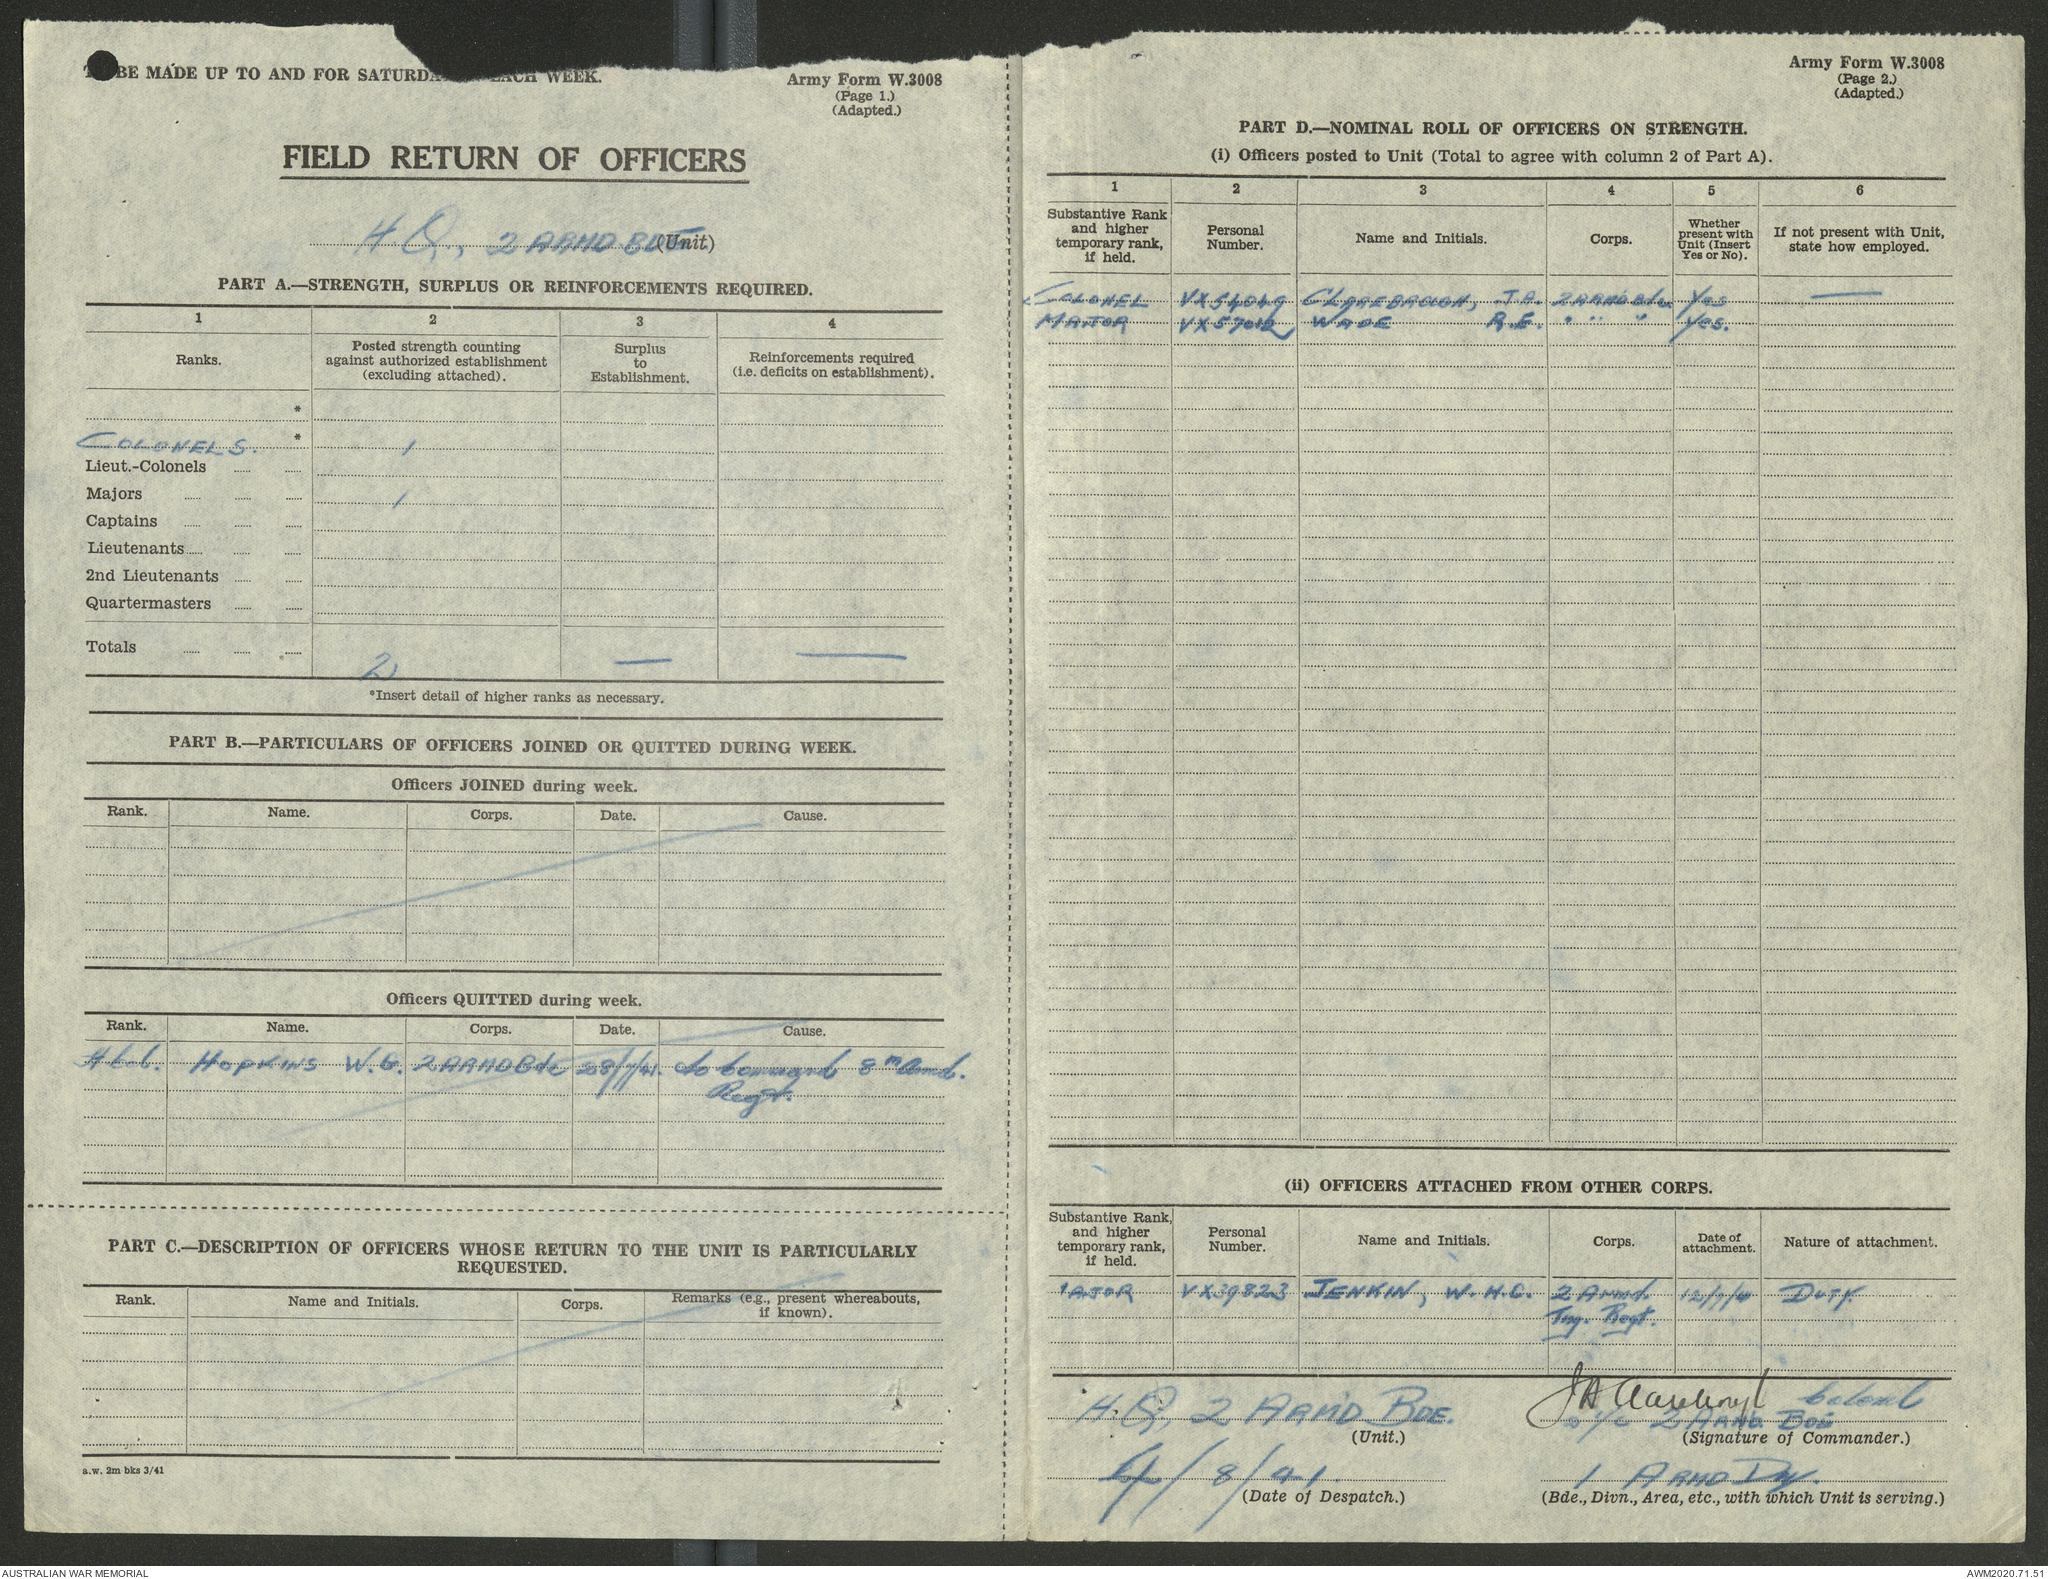 BE MADE UP TO AND FOR SATURDA EACH WEEK.
Army Form W.3008
(Page 1.)
(Adapted.)
FIELD RETURN OF OFFICERS
H Q, 2 ARMD BDE (Unit)
PART A.—STRENGTH, SURPLUS OR REINFORCEMENTS REQUIRED.
1 2 3 4
Ranks.
Posted strength counting against authorized establishment (excluding attached).
Surplus to Establishment.
Reinforcements required (i.e. deficits on establishment).
*
COLONELS. * 1
Lieut.-Colonels
Majors 1
Captains
Lieutenants
2nd Lieutenants
Quartermasters
Totals 2 — —
*Insert detail of higher ranks as necessary.
PART B.—PARTICULARS OF OFFICERS JOINED OR QUITTED DURING WEEK.
Officers JOINED during week.
Rank. Name. Corps. Date. Cause.
Officers QUITTED during week.
Rank. Name. Corps. Date. Cause.
HOPKINS W.G. 2 ARMD Bde 28/7/41. to command 8th Armd.
Regt.
PART C.—DESCRIPTION OF OFFICERS WHOSE RETURN TO THE UNIT IS PARTICULARLY
REQUESTED.
Rank. Name and Initials. Corps. Remarks (e.g., present whereabouts, if known).
a.w. 2m bks 3/41
Army Form W.3008
(Page 2.)
(Adapted.)
PART D.—NOMINAL ROLL OF OFFICERS ON STRENGTH.
(i) Officers posted to Unit (Total to agree with column 2 of Part A).
1 2 3 4 5 6
Substantive Rank and higher temporary rank, if held.
Personal Number.
Name and Initials.
Corps.
Whether present with Unit (Insert Yes or No).
If not present with Unit, state how employed.
COLONEL VX54049 J.A. 2 ARMD Bde Yes —
MAJOR WADE R.E. " " " Yes.
(ii) OFFICERS ATTACHED FROM OTHER CORPS.
Substantive Rank, and higher temporary rank, if held.
Personal Number.
Name and Initials.
Corps.
Date of attachment.
Nature of attachment.
AJOR VX39823 JENKIN, W.H.C. 2 Armd. 12/7/4 DUTY.
Tng. Regt.
H.Q, 2 ARM'D BDE.
(Unit.)
Colonel
2 ARMD. BDE
(Signature of Commander.)
4/8/41.
(Date of Despatch.)
1 ARMD DIV.
(Bde., Divn., Area, etc., with which Unit is serving.)
AUSTRALIAN WAR MEMORIAL
AWM2020.71.51